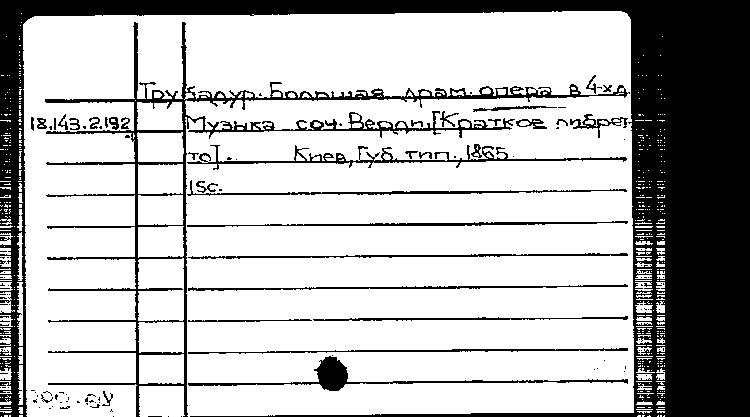 Трубадур. Большая драм. опера в 4-х д.
18.143.2.192 Музыка соч. Верди. [Краткое либрет-
то]. Киев, Губ. тип., 1865.
15с.